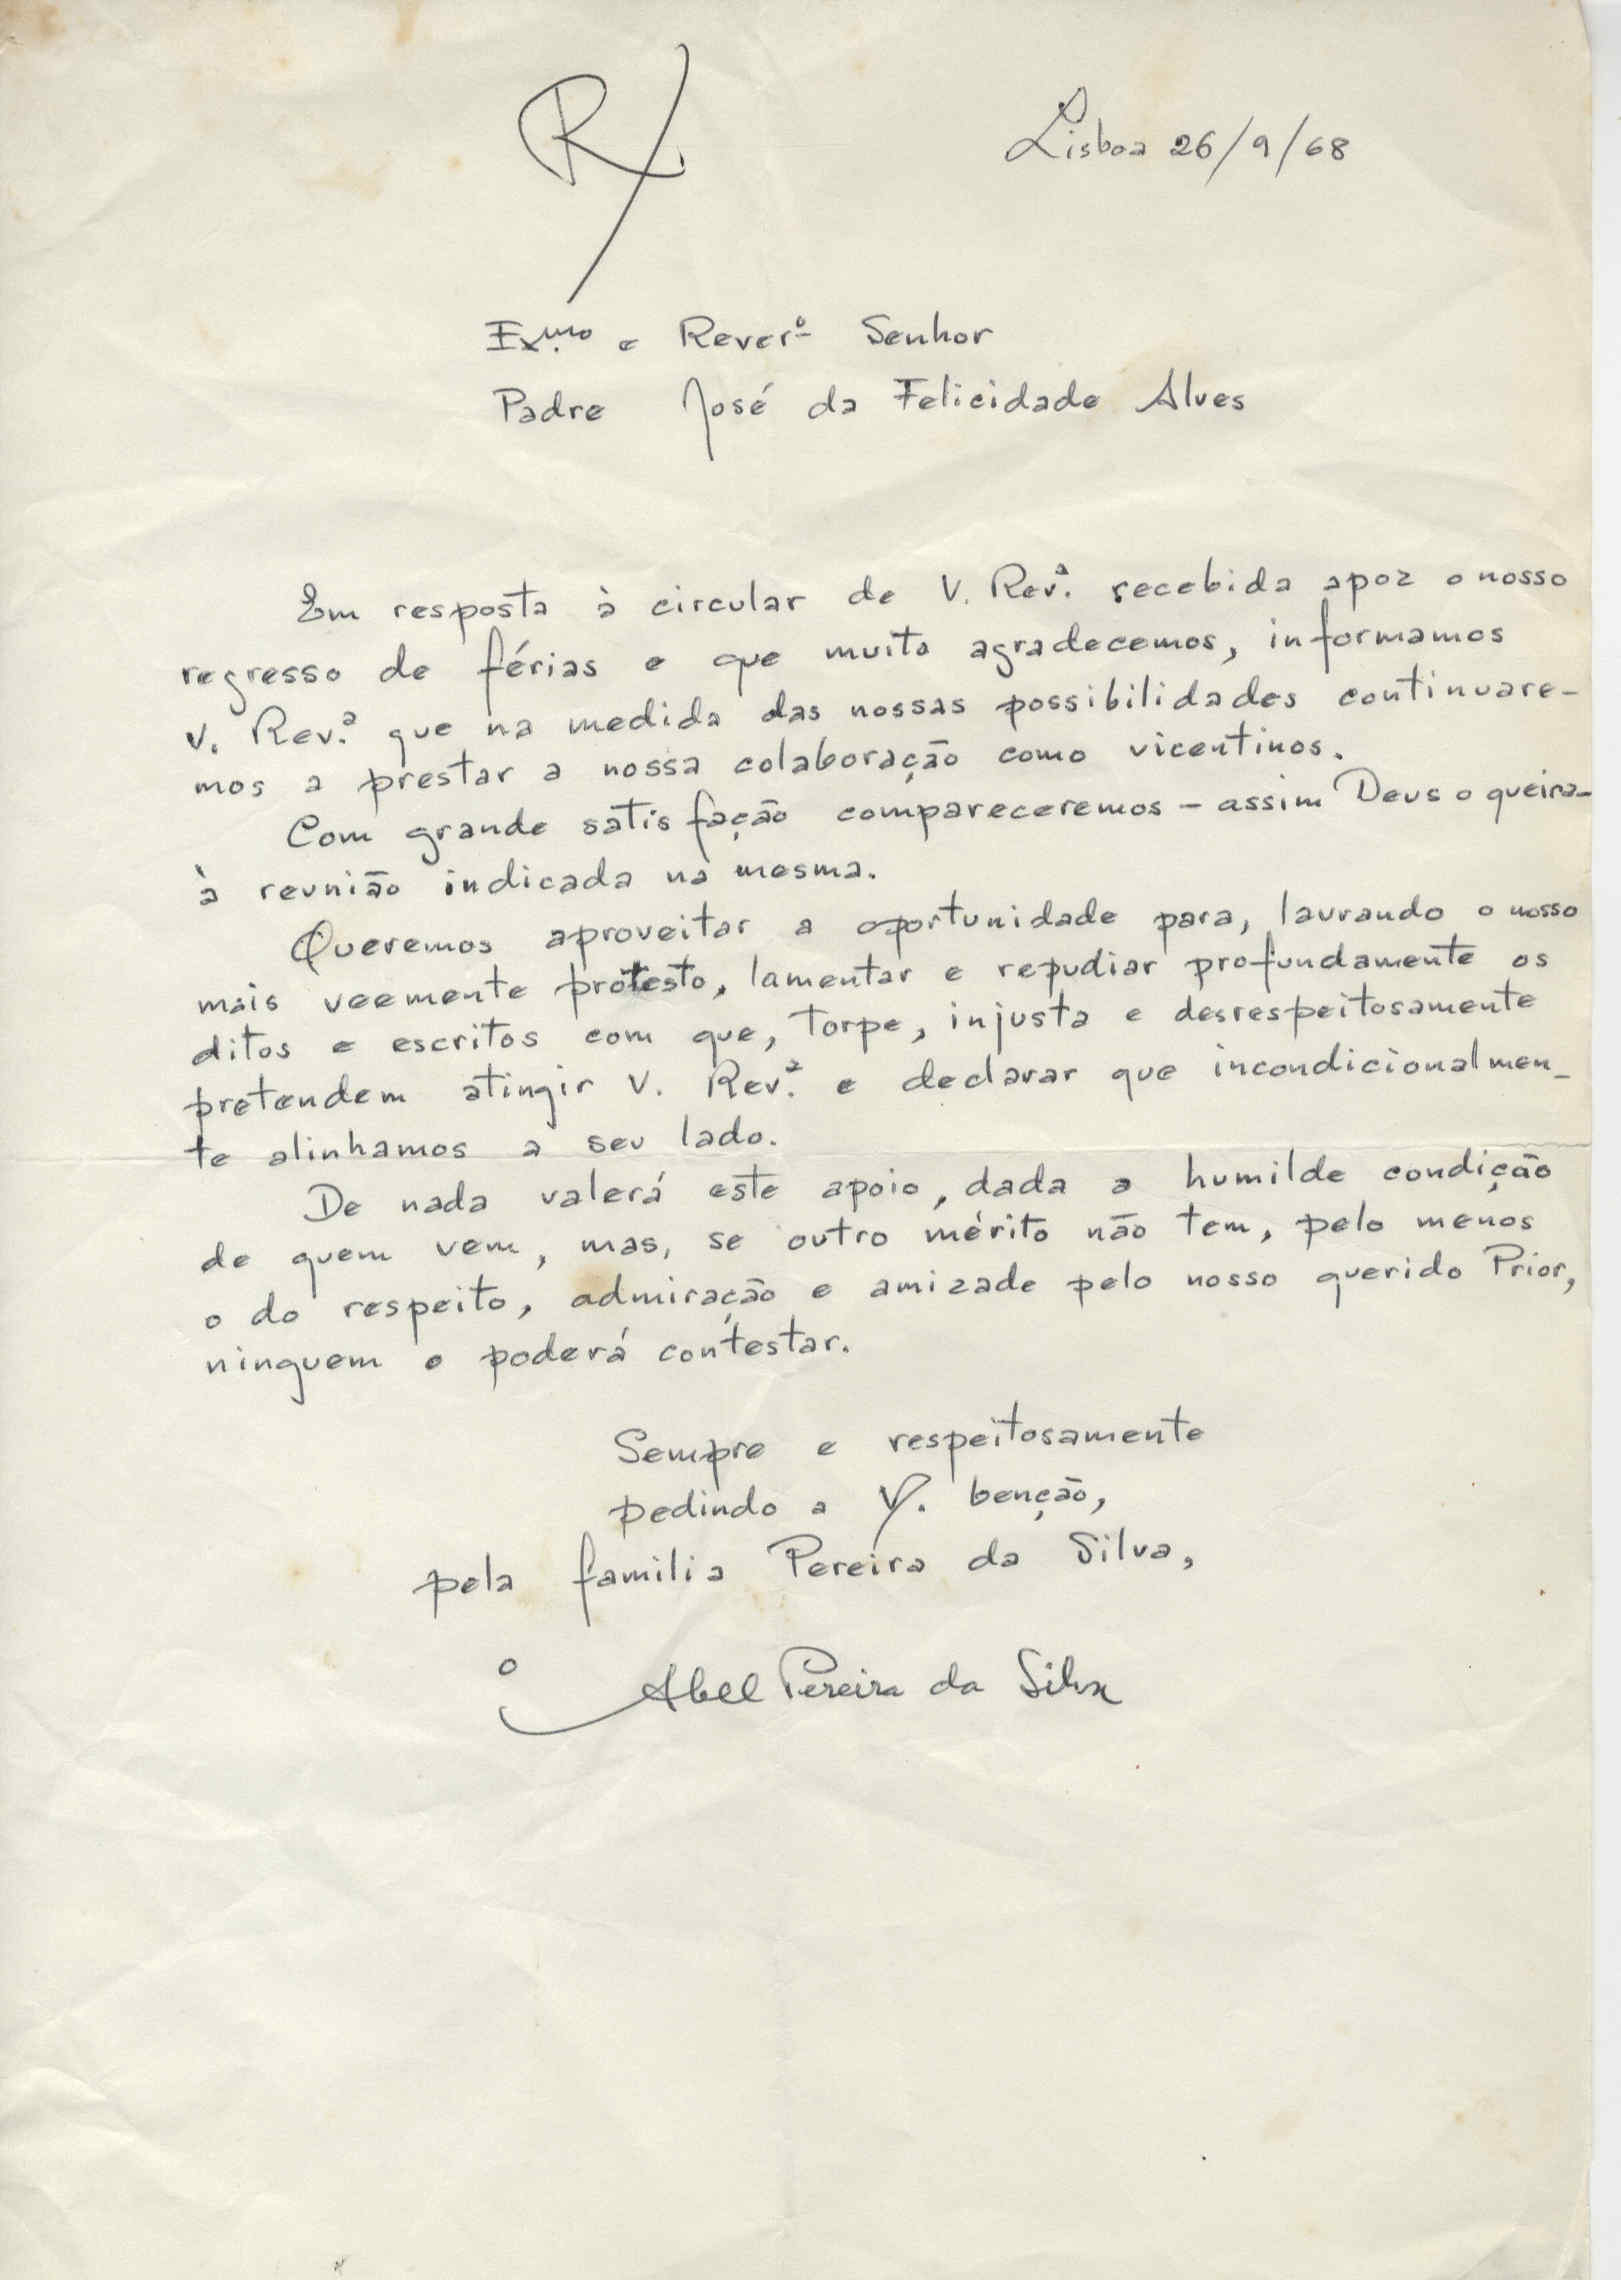 R/
Lisboa 26/9/68
Exmo e Reverº Senhor
Padre José da Felicidade Alves
Em resposta à circular de V. Revª. recebida apoz o nosso
regresso de férias e que muito agradecemos, informamos
V. Revª. que na medida das nossas possibilidades continuare-
mos a prestar a nossa colaboração como vicentinos.
Com grande satisfação compareceremos - assim Deus o queira-
à reunião indicada na mesma.
Queremos aproveitar a oportunidade para, lavrando o nosso
mais veemente protesto, lamentar e repudiar profundamente os
ditos e escritos com que, torpe, injusta e desrespeitosamente
pretendem atingir V. Revª. e declarar que incondicionalmen-
te alinhamos a seu lado.
De nada valerá este apoio, dada a humilde condição
de quem vem, mas, se outro mérito não tem, pelo menos
o do respeito, admiração e amizade pelo nosso querido Prior,
ninguem o poderá contestar.
Sempre e respeitosamente
pedindo a V. benção,
pela familia Pereira da Silva,
Abel Pereira da Silva